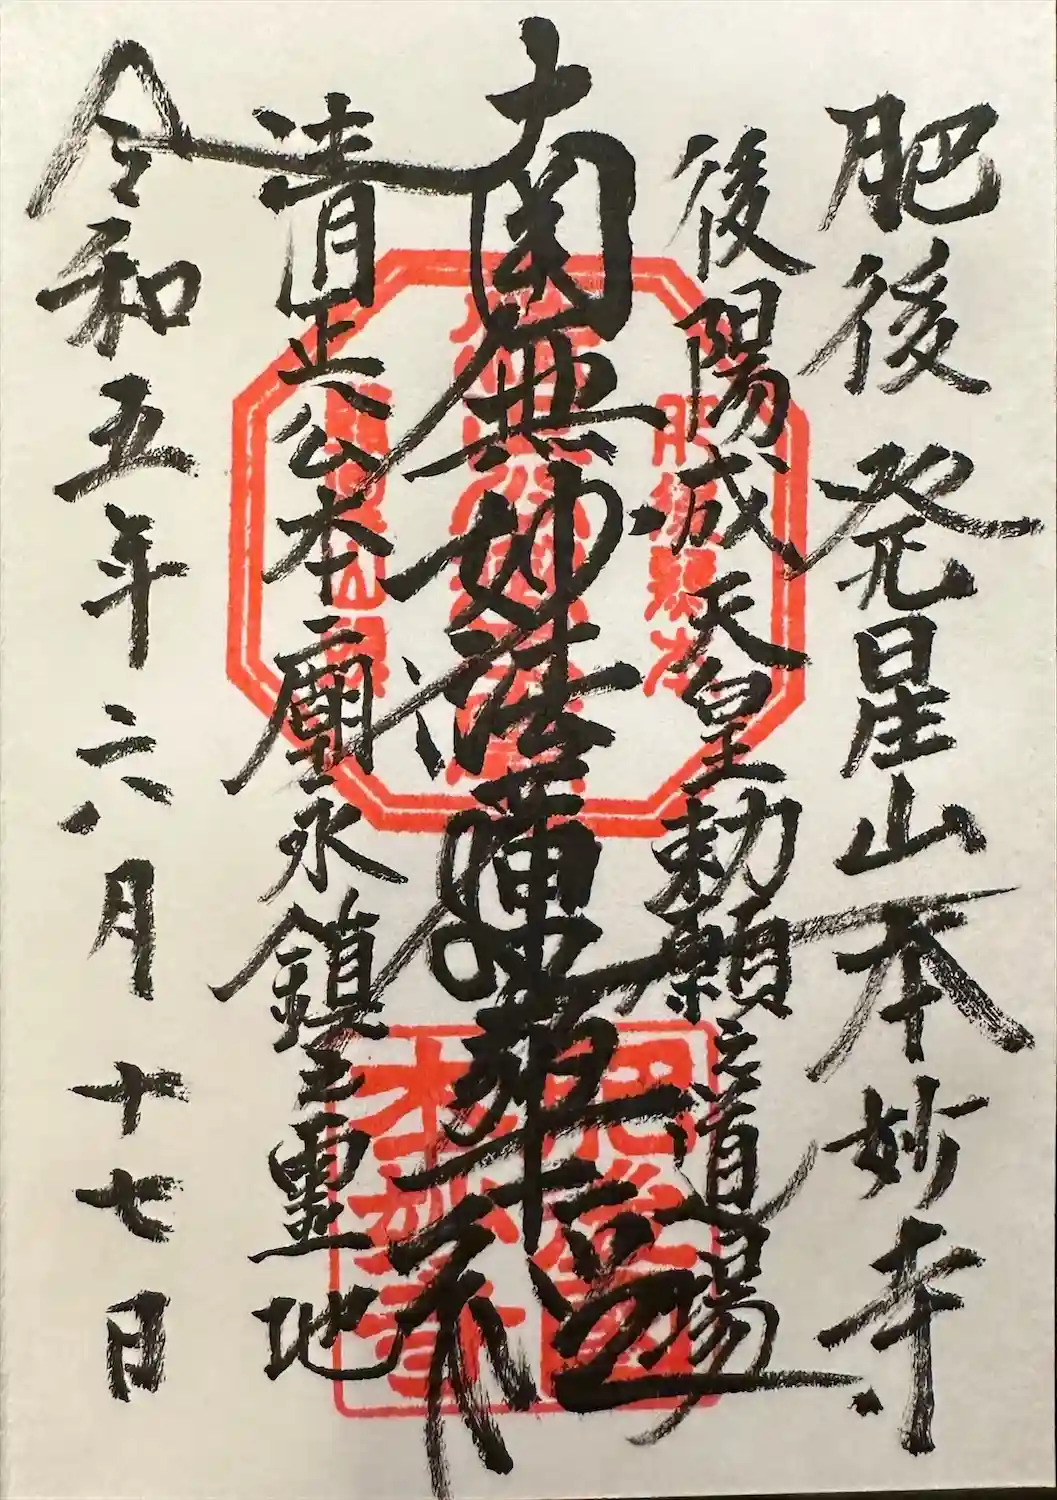 肥後発星山本妙寺
後陽成天皇勅願之道場
南無妙法蓮華経
清正公本廟永鎮之霊地
令和五年六月十七日